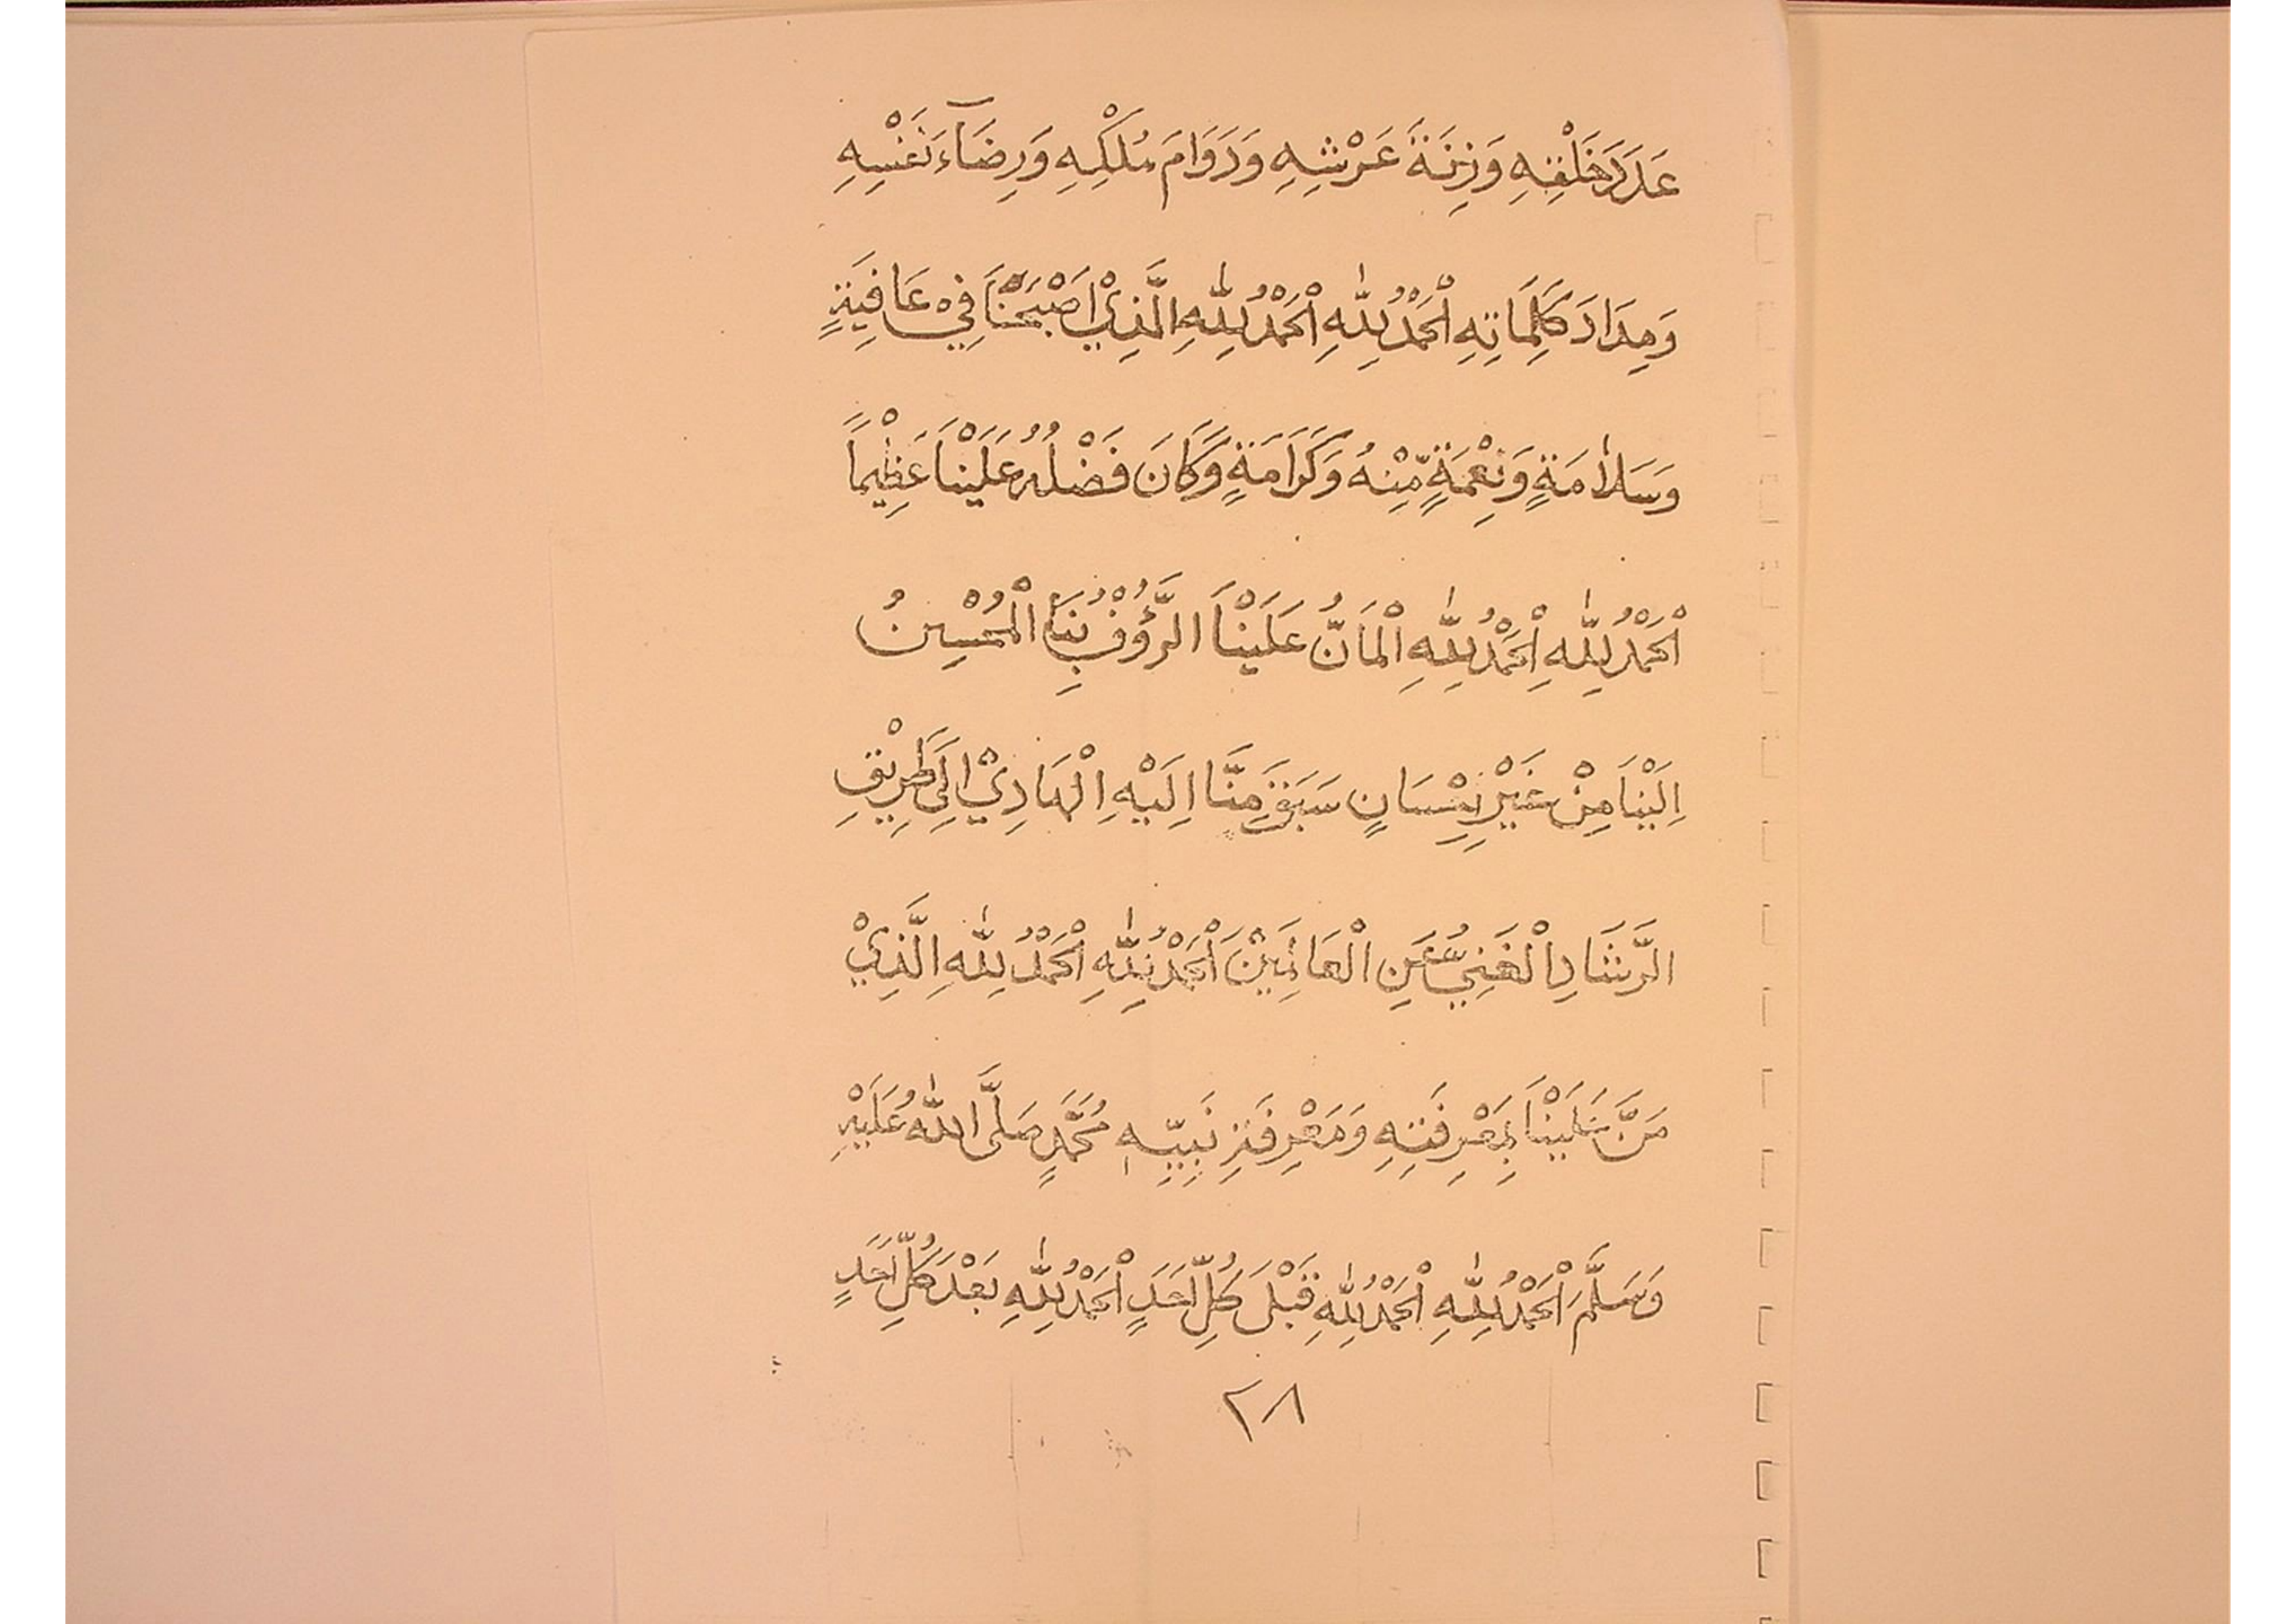 عَدَدَ خَلْقِهِ وَزِنَةَ عَرْشِهِ وَدَوَامَ مُلْكِهِ وَرِضَآءَ نَفْسِهِ
وَمِدَادَ كَلِمَاتِهِ اَلْحَمْدُ لِلّٰهِ اَلْحَمْدُ لِلّٰهِ الَّذِيْ اَصْبَحْنَا فِيْ عَافِيَةٍ
وَسَلَامَةٍ وَنِعْمَةٍ مِّنْهُ وَكَرَامَةٍ وَكَانَ فَضْلُهُ عَلَيْنَا عَظِيْماً
اَلْحَمْدُ لِلّٰهِ اَلْحَمْدُ لِلّٰهِ الْمَانُّ عَلَيْنَا الرَّؤُفُ بِنَا الْمُحْسِنُ
اِلَيْنَا مِنْ غَيْرِ اِحْسَانٍ سَبَقَ مِنَّا اِلَيْهِ الْهَادِيْ اِلَى طَرِيْقِ
الرَّشَادِ الْغَنِيُّ عَنِ الْعَالَمِيْنَ اَلْحَمْدُ لِلّٰهِ اَلْحَمْدُ لِلّٰهِ الَّذِيْ
مَنَّ عَلَيْنَا بِمَعْرِفَتِهِ وَمَعْرِفَةِ نَبِيِّهِ مُحَمَّدٍ صَلَّى اللّٰهُ عَلَيْهِ
وَسَلَّمَ اَلْحَمْدُ لِلّٰهِ اَلْحَمْدُ لِلّٰهِ قَبْلَ كُلِّ اَحَدٍ اَلْحَمْدُ لِلّٰهِ بَعْدَ كُلِّ اَحَدٍ
٢٨